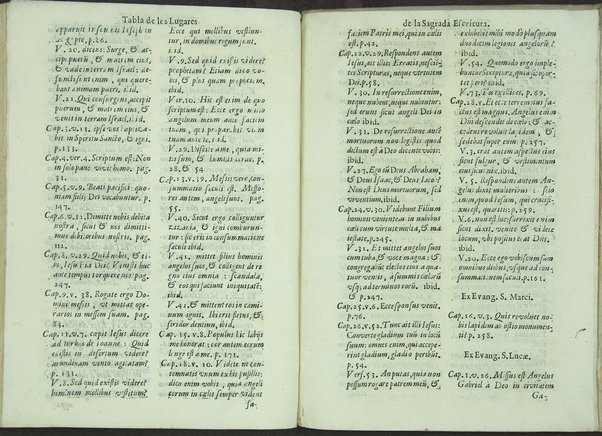 Tabla de los Lugares
apparuit in somnis Ioseph in
Ægypto, p.86.
V. 20. dicens: Surge, & ac-
cipe puerum, & matrem eius,
& vade in terram Israel: de-
functi sunt enim, qui quære-
bant animam pueri. ibid.
V. 21. Qui consurgens, accepit
puerum, & matrem eius, &
venit in terram Israel, ibid.
Cap.3.v.11. ipse vos baptiza-
bit in Spiritu Sancto, & igni.
p.133.
Cap.4.ver.4. Scriptum est: Non
in solo pane vivit homo. pag.
31.
Cap.5.v.9. Beati pacifici: quo-
niam filij Dei vocabuntur. p.
147.
Cap.6.v.12. Dimitte nobis debita
nostra, sicut & nos dimitti-
mus debitoribus nostris. pag.
112.
Cap.8.v.29. Quid nobis, & ti-
bi, Iesu Fili Dei? Venisti huc
ante tempus torquere nos. pag.
147.
Cap.9.v. 38. Rogate ergo Do-
minum messis, vt mittat ope-
rarios in messem suam. pag.
84.
Cap.11.v.7. cæpit Iesus dicere
ad turbas de Ioanne: Quid
existis in desertum videre?
arundinem vento agitatam?
p. 131.
V.8. Sed quid existis videre?
hominem mollibus vestitum?
Ecce qui mollibus vestiun-
tur, in domibus regum sunt.
ibid.
V.9. Sed quid existis videre?
prophetam? Etiam dico vo-
bis, & plus quam prophetam,
ibid.
Ver.10. Hic est enim de quo
scriptum est: Ecce ego mitto
angelum meum ante faciem
tuam, qui præparabit viam
tuam ante te. ibid.
V.29. Discite a me, quia mi-
tis sum, & humilis corde, p.
28. & 54.
Cap.13.v.39. Messis verò con-
summatio sæculi est. Messo-
res autem, angeli sunt. pag.
55.
V.40. Sicut ergo colliguntur
zizania, & igni comburun-
tur: sic erit in consummatione
sæculi. ibid.
V.41. mittet filius hominis
angelos suos, & colligent de re-
gno eius omnia scandala,
& eos qui faciunt iniquitatē:
ibid.
V.42. & mittent eos in cami-
num ignis. Ibi erit fletus, &
stridor dentium, ibid.
Cap.15.v.8. Populus hic labijs
me honorat: cor autem eorum
longe est a me. p. 171.
Cap.18.v. 10. Videte ne con-
temnatis vnum ex his pusillis:
dico enim vobis, quia angeli
eorum in cælis semper vident
fa-
de la Sagrada Escritura.
faciem Patris mei, qui in cælis
est. p.42.
Cap.22.v.29. Respondens autem
Iesus, ait illis: Erratis, nescien-
tes Scripturas, neque virtutem
Dei. p.58.
V. 30. In resurrectione enim,
neque nubent, neque nubentur:
sed erunt sicut angeli Dei in
cælo ibid.
V. 31. De resurrectione autē
mortuorum non legistis quod
dictum est à Deo dicente vobis:
ibid.
V.27. Ego sū Deus Abraham,
& Deus Isaac, & Deus Iacob?
Non est Deus mortuorum, sed
viventium. ibid.
Cap.24.v.30. Videbunt Filium
hominis venientem in nubibus
cæli cum virtute multa, & ma-
iestate, p.245.
V.31. Et mittet angelos suos
cum tuba, & voce magna: &
congregabūt electos eius a qua-
tuor ventis, a summis cælorum,
vsque ad terminos eorū. ibid.
& p.247.
Cap.25.v.6. Ecce sponsus venit.
p.76.
Cap.26.v.52. Tunc ait illi Iesus:
Converte gladium tuū in locū
suum: omnes enim, qui accepe-
rint gladium, gladio peribūt.
p.54.
Vers.53. An putas, quia non
possum rogare patrem meū, &
exhibebit mihi modò plusquam
duodecim legiones angelorū?
ibid.
V. 54. Quomodo ergo imple-
buntur Scripturæ, quia sic opor-
tet fieri? ibid.
Cap.28.v.2. Et ecce terræmotus fa-
ctus est magnus. Angelus enim
Dñi descendit de cælo, & ac-
cedens revolvit lapidem, &
sedebat super eum. p.257.
V.3. erat autem aspectus eius
sicut fulgur, & vestimentum
eius sicut nix. ibid.
V. 5. Respondens autem An-
gelus dixit mulieribus: scio
enim, quod Iesum, qui crucifi-
xus est, quæritis: p.259.
V.6. non est hic: surrexit enim
sicut dixit, venite & videte
locum, vbi positus erat Dñs.
ibid.
V.20. Ecce ego vobiscum sum
omnibus diebus, vsque ad con-
summationem sæculi. p.101.
Ex Evang. S. Marci.
Cap.16.v.3. Quis revolvet no-
bis lapidem ab ostio monumen-
ti? p.258.
Ex Evang. S. Lucæ.
Cap.1.v.26. Missus est Angelus
Gabriel à Deo in civitatem
Ga-